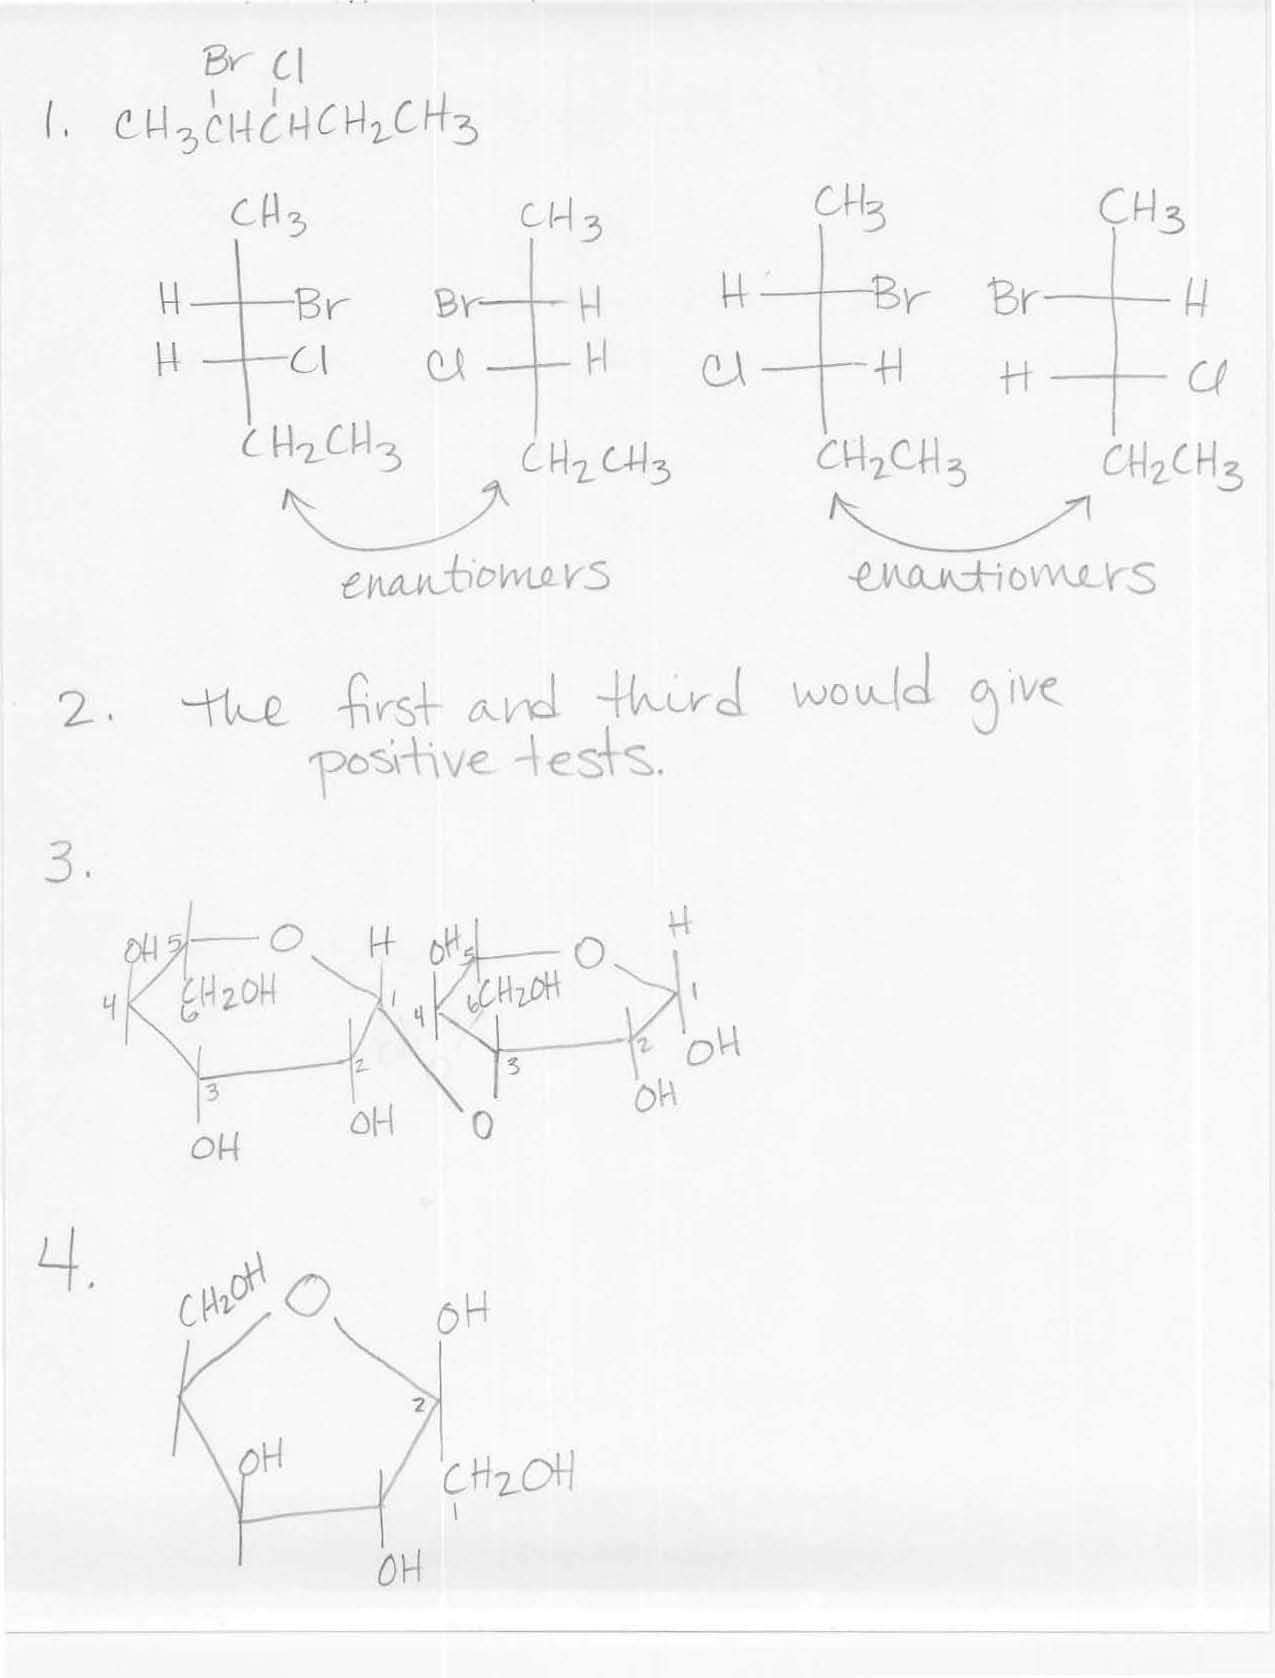 Br Cl
1. CH3CHCHCH2CH3
CH3 CH3 CH3 CH3
H Br Br H H Br Br H
H Cl Cl H Cl H H Cl
CH2CH3 CH2CH3 CH2CH3 CH2CH3
enantiomers enantiomers
2. the first and third would give
positive tests.
3.
OH 5 O H OH 5 O H
4 6CH2OH 1 4 6CH2OH 1
3 2 3 2 OH
OH OH O OH
4.
CH2OH O OH
2
OH CH2OH
1
OH